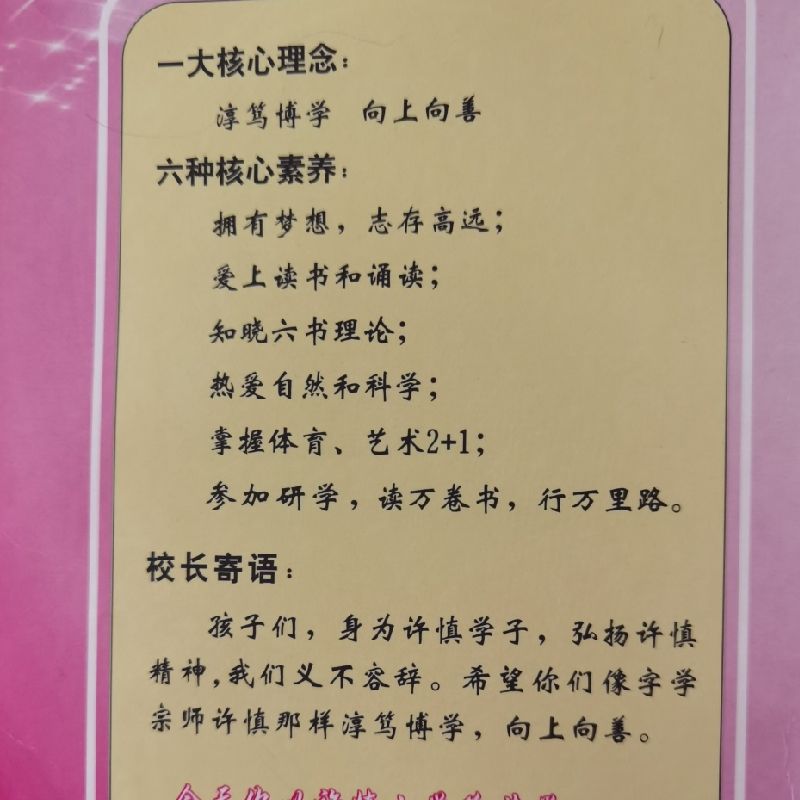 一大核心理念：
淳笃博学 向上向善
六种核心素养：
拥有梦想，志存高远；
爱上读书和诵读；
知晓六书理论；
热爱自然和科学；
掌握体育、艺术2+1；
参加研学，读万卷书，行万里路。
校长寄语：
孩子们，身为许慎学子，弘扬许慎
精神，我们义不容辞。希望你们像字学
宗师许慎那样淳笃博学，向上向善。